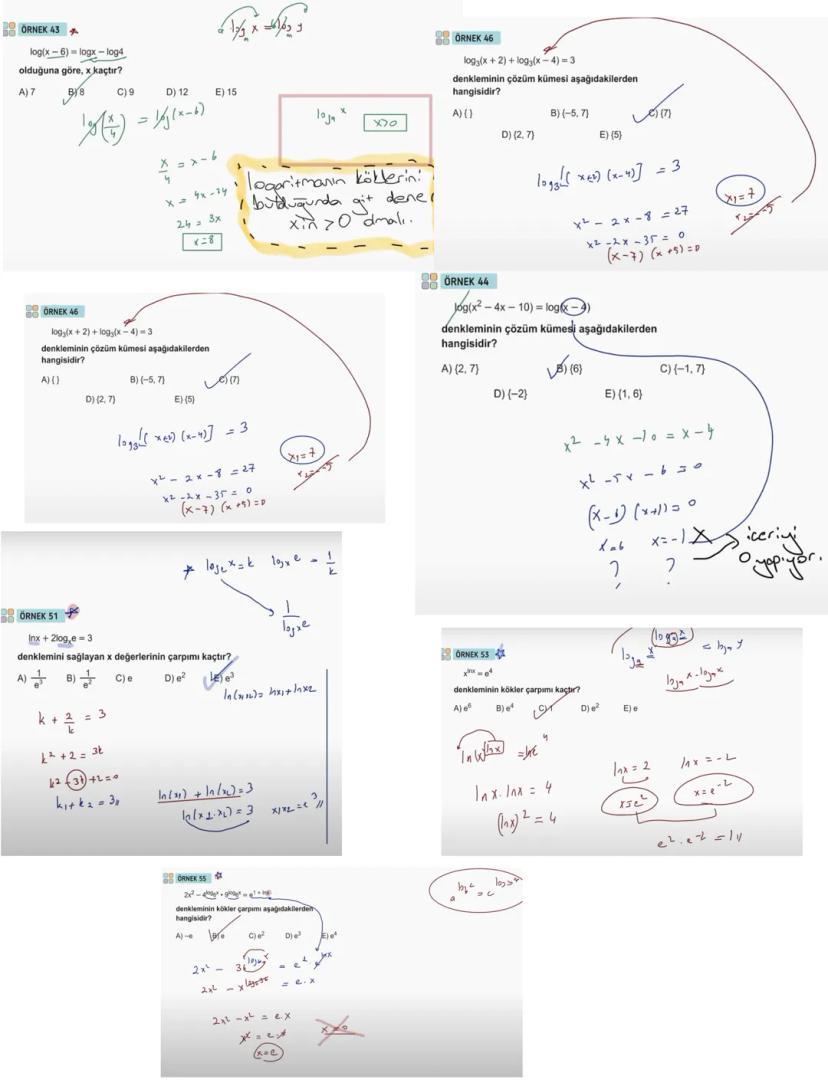 ÖRNEK 43
log(x – 6) = logx – log4
olduğuna göre, x kaçtır?
A) 7 B) 8 C) 9 D) 12 E) 15
log(x/4) = log(x-6)
x/4 = x-6
x = 4x-24
24 = 3x
x=8
x>0
logaritmanın köklerini
bulduğunda git dene
x in >0 olmalı.
ÖRNEK 46
log₃(x + 2) + log₃(x – 4) = 3
denkleminin çözüm kümesi aşağıdakilerden
hangisidir?
A) { } B) {–5, 7} C) {7}
D) {2, 7} E) {5}
log₃[(x+2)(x-4)] = 3
x² - 2x - 8 = 27
x² - 2x - 35 = 0
(x-7) (x+5) = 0
x₁ = 7
x₂ = -5
ÖRNEK 46
log₃(x + 2) + log₃(x – 4) = 3
denkleminin çözüm kümesi aşağıdakilerden
hangisidir?
A) { } B) {–5, 7} C) {7}
D) {2, 7} E) {5}
log₃[(x+2)(x-4)] = 3
x² - 2x - 8 = 27
x² - 2x - 35 = 0
(x-7) (x+5) = 0
x₁ = 7
x₂ = -5
ÖRNEK 44
log(x² – 4x – 10) = log(x – 4)
denkleminin çözüm kümesi aşağıdakilerden
hangisidir?
A) {2, 7} B) {6} C) {–1, 7}
D) {–2} E) {1, 6}
x² - 4x - 10 = x - 4
x² - 5x - 6 = 0
(x-6) (x+1) = 0
x=6 x=-1 X
? ?
içeriyi
0 yapıyor.
logₑx = k logₓe = 1/k
1/logₓe
ÖRNEK 51
lnx + 2logₓe = 3
denklemini sağlayan x değerlerinin çarpımı kaçtır?
A) 1/e³ B) 1/e² C) e D) e² E) e³
ln(x₁x₂) = lnx₁+lnx₂
k + 2/k = 3
k² + 2 = 3k
k² - 3k + 2 = 0
k₁ + k₂ = 3
ln(x₁) + ln(x₂) = 3
ln(x₁.x₂) = 3 x₁x₂ = e³
ÖRNEK 53
x^lnx = e⁴
denkleminin kökler çarpımı kaçtır?
A) e⁶ B) e⁴ C) 1 D) e² E) e
lnx . lnx = 4
(lnx)² = 4
lnx = 2 lnx = -2
x=e² x=e⁻²
e² . e⁻² = 1
ÖRNEK 55
denkleminin kökler çarpımı aşağıdakilerden
hangisidir?
A) –e B) e C) e² D) e³ E) e⁴
2x² - x² = e.x
x² = e.x
x=e
x=0